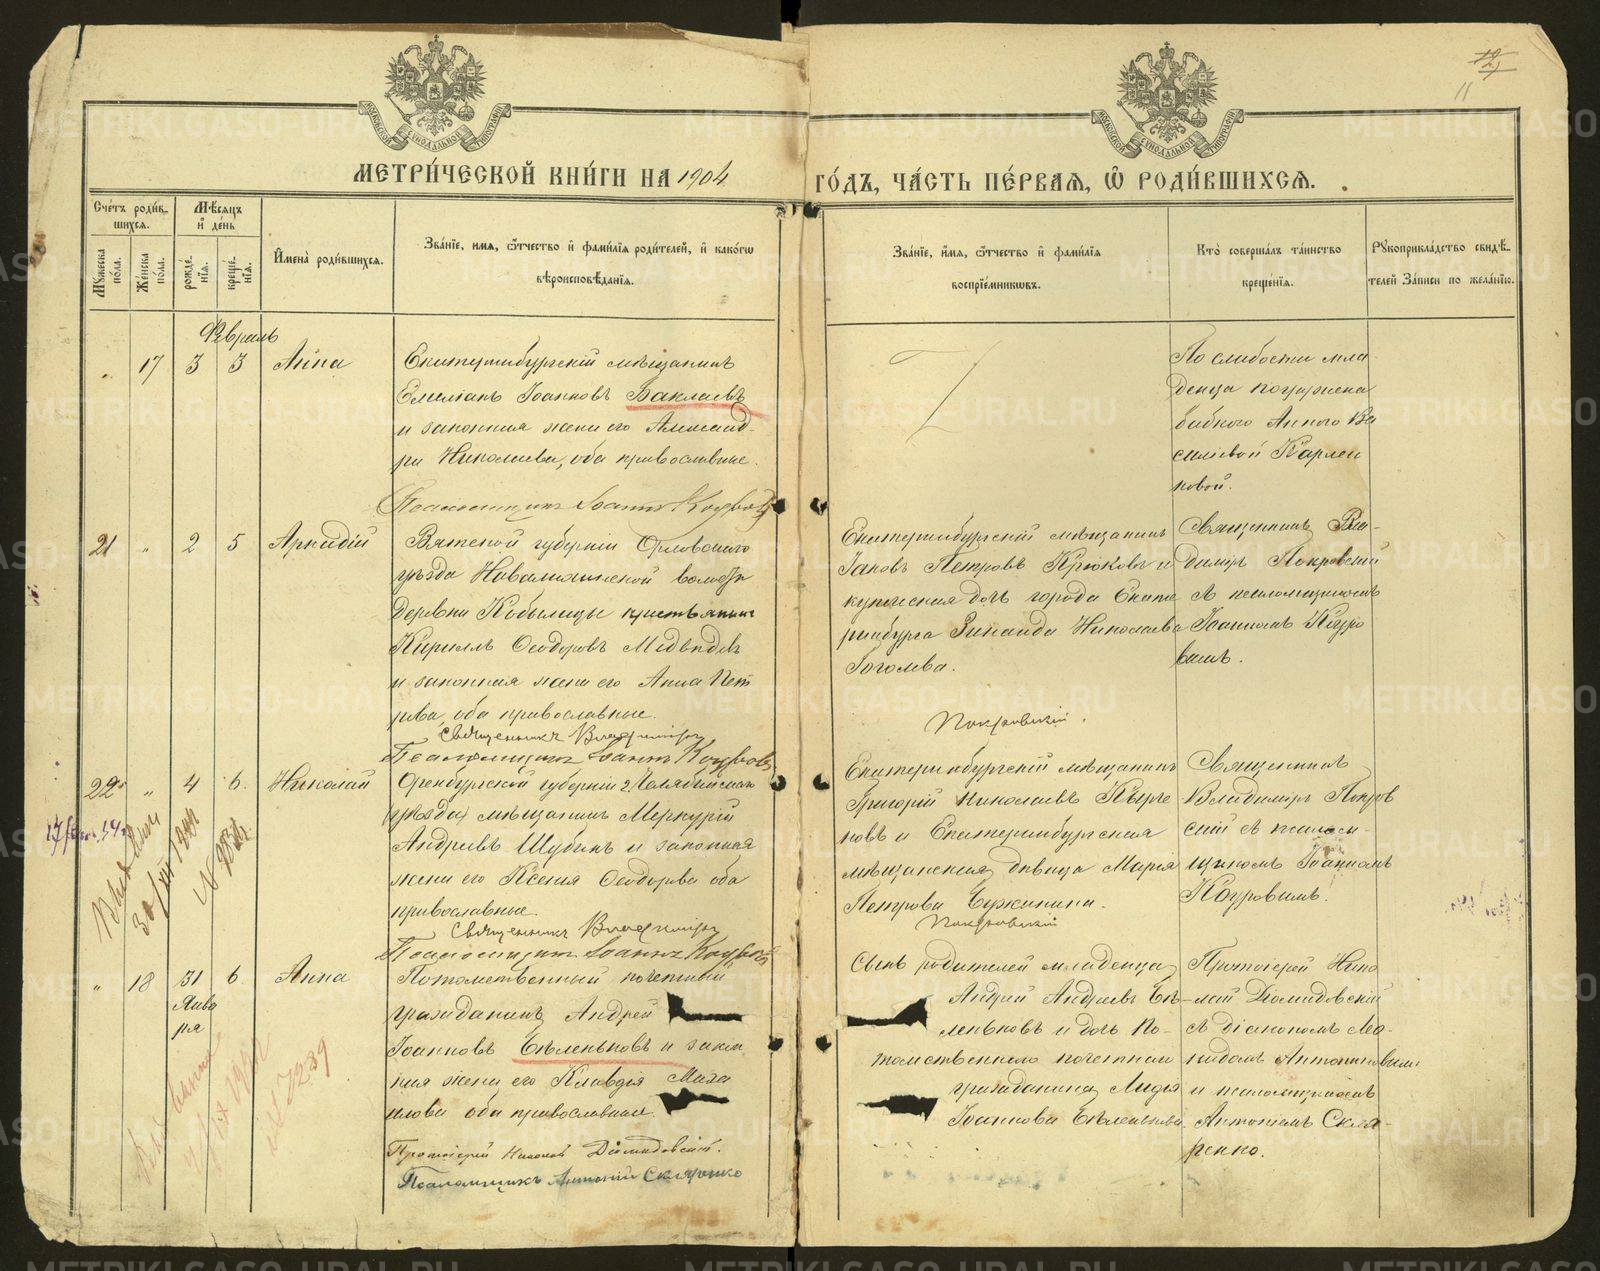 МЕТРИ́ЧЕСКОЙ КНИ́ГИ НА 1904
ГО́ДЪ, ЧА́СТЬ ПЕ́РВАѦ, Ѡ҆ РОДИ́ВШИХСѦ.
11
Сче́тъ роди́в-
шихсѧ.
Мѣсяцъ
и де́нь
Мꙋ́жеска
по́ла.
Же́нска
по́ла.
рожде́-
нїѧ.
креще́-
нїѧ.
И҆мена̀ роди́вшихсѧ.
Зва́нїе, имѧ, ѻ҆́тчество и҆ фами́лїѧ роди́телей, и҆ како́гѡ
вѣроисповѣ́данїѧ.
Зва́нїе, и҆́мѧ, ѻ҆́тчество и҆ фами́лїѧ
воспрїе́мникѡвъ.
Кто̀ соверша́лъ та́инство
креще́нїѧ.
Рꙋкоприкла́дство свидѣ́-
телей За́писи по жела́нїю.
Февраль
17 3 3 Анна
Екатеринбургскій мѣщанинъ
Емеліанъ Іоанновъ Баклаевъ
и законная жена его Александ-
ра Николаева, оба православные.
Псаломщикъ Іоаннъ Коуровъ
По слабости мла
денца погружена
бабкою Анною Ва
силіевой Карлен
ковой.
21 „ 2 5 Аркадій
Вятской губерніи Орловскаго
уѣзда
деревни Кобылицы крестьянинъ
Кириллъ Ѳеодоровъ Медвѣдевъ
и законная жена его Анна Пет
рова, оба православные.
Священникъ Владиміръ
Псаломщикъ Іоаннъ Коуровъ
Екатеринбургскій мѣщанинъ
Іаковъ Петровъ Крюковъ и
купеческая дочь города Екате
ринбурга Зинаида Николаева
Гоголева.
Покровскій.
Священникъ Вла-
диміръ Покровскій
съ псаломщикомъ
Іоанномъ Коуро
вымъ.
22 „ 4 6. Николай
Оренбургской губерніи г. Челябинска
(уѣзда) мѣщанинъ Меркурій
Андреевъ Шубинъ и законная
жена его Ксенія Ѳеодорова оба
православные.
Священникъ Владиміръ
Псаломщикъ Іоаннъ Коуровъ
Екатеринбургскій мѣщанинъ
Григорій Николаевъ
новъ и Екатеринбургская
мѣщанская дѣвица Марія
Петрова
Покровскій
Священникъ
Владиміръ Покров
скій съ псалом-
щикомъ Іоанномъ
Коуровымъ.
„ 18 31 6. Анна
Янва
ря
Потомственный почетный
гражданинъ Андрей
Іоанновъ Бѣленьковъ и закон
ная жена его Клавдія Миха
илова оба православные.
Протоіерей Николай Діомидовскій.
Псаломщикъ Антоній Скляренко
Сынъ родителей младенца
Андрей Андреевъ Бѣ-
леньковъ и дочь По-
томственнаго почетнаго
гражданина Лидія
Іоаннова Бѣленькова.
Протоіерей Нико
лай Діомидовскій
съ діакономъ
и псаломщикомъ
Антоніемъ Скля-
ренко.
№ 7239
METRIKI.GASO-URAL.RU